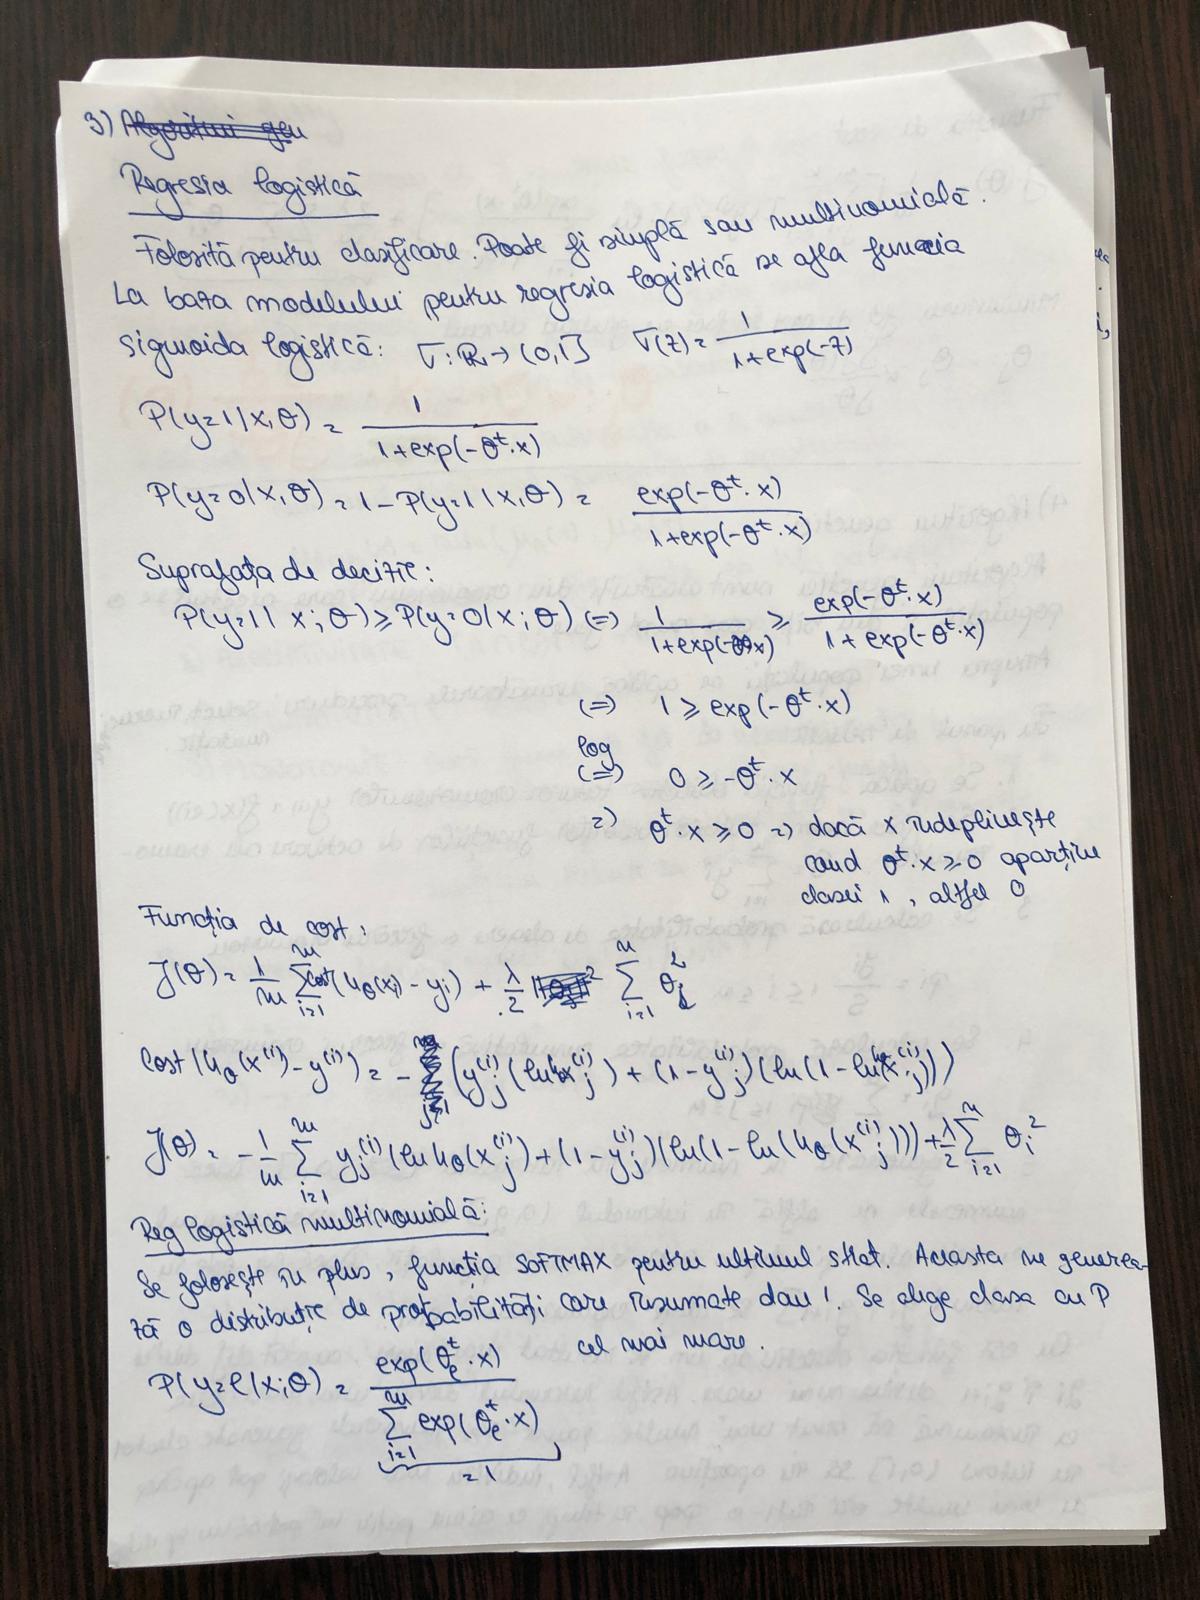 3) Algoritmi gen
Regresia logistică
Folosită pentru clasificare. Poate fi simplă sau multinomială.
La baza modelului pentru regresia logistică se afla funcția
sigmoida logistică: σ: R → (0,1] σ(z) = 1 / (1+exp(-z))
P(y=1|x,θ) = 1 / (1+exp(-θᵗ·x))
P(y=0|x,θ) = 1 - P(y=1|x,θ) = exp(-θᵗ·x) / (1+exp(-θᵗ·x))
Suprafața de decizie:
P(y=1|x;θ) ≥ P(y=0|x;θ) (=) 1 / (1+exp(-θᵗx)) ≥ exp(-θᵗ·x) / (1+exp(-θᵗ·x))
(=) 1 ≥ exp(-θᵗ·x)
log
(=) 0 ≥ -θᵗ·x
=) θᵗ·x ≥ 0 =) dacă x îndeplinește
cond θᵗ·x ≥ 0 aparține
clasei 1, altfel 0
Funcția de cost:
J(θ) = 1/m Σ_{i=1}^{m} cost(h_θ(x_i) - y_i) + λ/2 Σ_{i=1}^{n} θ_j²
Cost(h_θ(x⁽ⁱ⁾) - y⁽ⁱ⁾) = - (y_j⁽ⁱ⁾ (ln h_θ x_j⁽ⁱ⁾) + (1-y_j⁽ⁱ⁾)(ln(1-ln h_θ(x_j⁽ⁱ⁾)))
J(θ) = -1/m Σ_{i=1}^{m} y_j⁽ⁱ⁾ (ln h_θ(x_j⁽ⁱ⁾) + (1-y_j⁽ⁱ⁾)(ln(1-ln(h_θ(x_j⁽ⁱ⁾))) + λ/2 Σ_{i=1}^{n} θ_i²
Reg logistică multinomială:
Se folosește în plus, funcția SOFTMAX pentru ultimul strat. Aceasta ne generea-
ză o distribuție de probabilități care însumate dau 1. Se alege clasa cu P
cel mai mare.
P(y=e|x;θ) = exp(θ_eᵗ·x) / Σ_{i=1}^{m} exp(θ_eᵗ·x)
=1